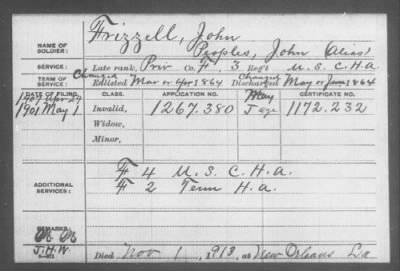 Frizzell, John
NAME OF SOLDIER: Peoples, John (Alias)
SERVICE: Late rank, Priv Co. F, 3 Reg't U. S. C. H A
TERM OF SERVICE: Claimed Enlisted Mar or Apr 1864 Claimed Discharged May or June 1864
DATE OF FILING. CLASS. APPLICATION NO. CERTIFICATE NO.
1907 Apr 27 May
1901 May 1 Invalid, 1267.380 1172.232
Widow,
Minor,
ADDITIONAL SERVICES:
F 4 U. S. C. H. A.
F 2 Tenn H. a.
REMARKS:
J.H.W
Died Nov 1, 1913, at New Orleans La